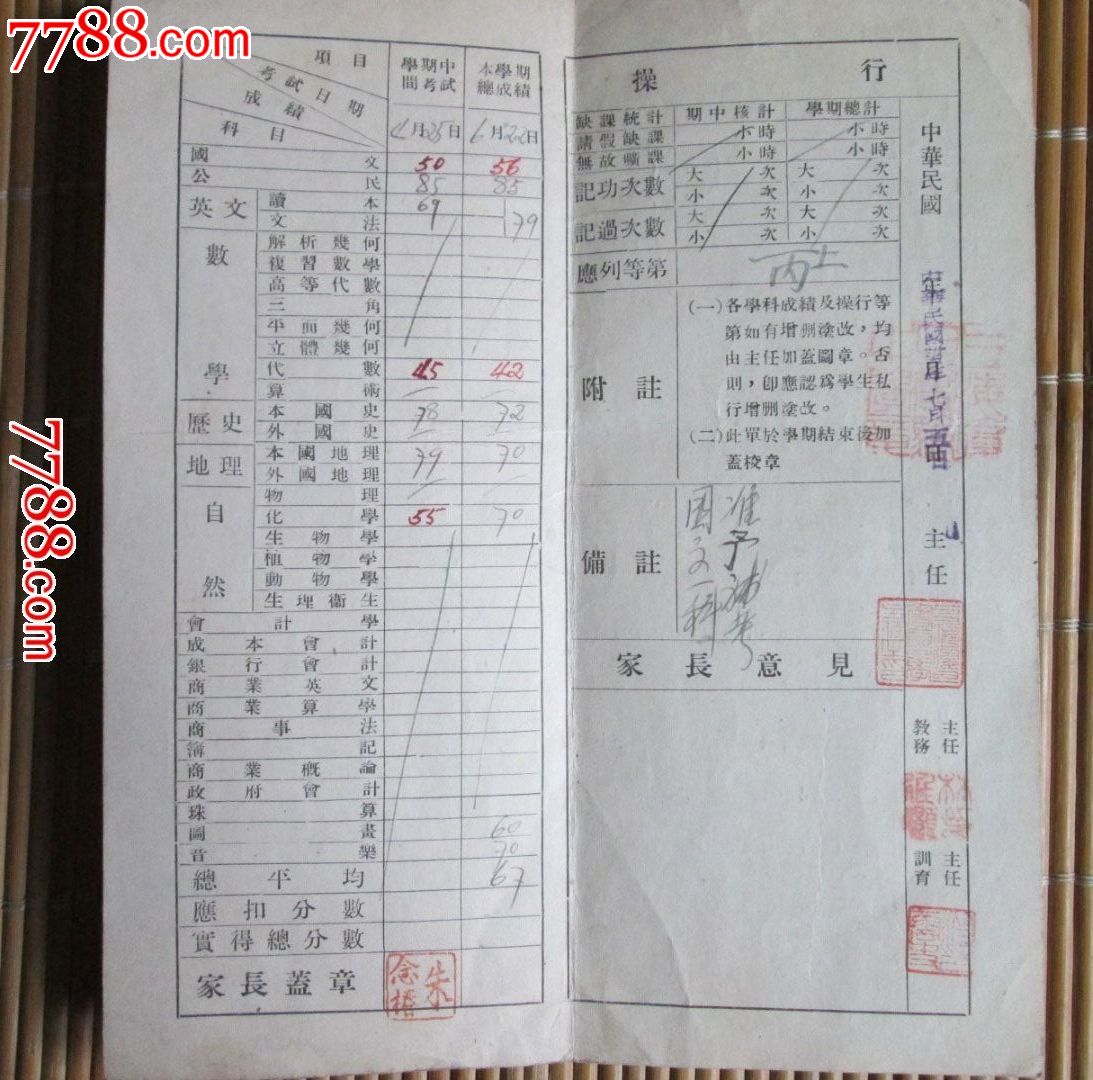 7788.com
7788.com
項目
考試日期
成績
科目
學期中間考試
本學期總成績
4月25日 6月22日
國文 50 56
公民 85 85
英文
讀本 69
文法 79
數學
解析幾何
複習數學
高等代數
三角
平面幾何
立體幾何
代數 45 42
算術
歷史
本國史 78 72
外國史
地理
本國地理 79 70
外國地理
自然
物理
化學 55 70
生物學
植物學
動物學
生理衞生
會計學
成本會計
銀行會計
商業英文
商業算學
商事法
簿記
商業概論
政府會計
珠算
圖畫 60
音樂 70
總平均 67
應扣分數
實得總分數
家長蓋章
朱
操行
缺課統計 期中核計 學期總計
請假缺課 小時 小時
無故曠課 小時 小時
記功次數 大次 大次
小次 小次
記過次數 大次 大次
小次 小次
應列等第 丙上
附註
(一)各學科成績及操行等
第如有增刪塗改，均
由主任加蓋圖章。否
則，卽應認爲學生私
行增刪塗改。
(二)此單於學期結束後加
蓋校章
備註
准予補考
國文一科
家長意見
中華民國
主任
教務主任
訓育主任